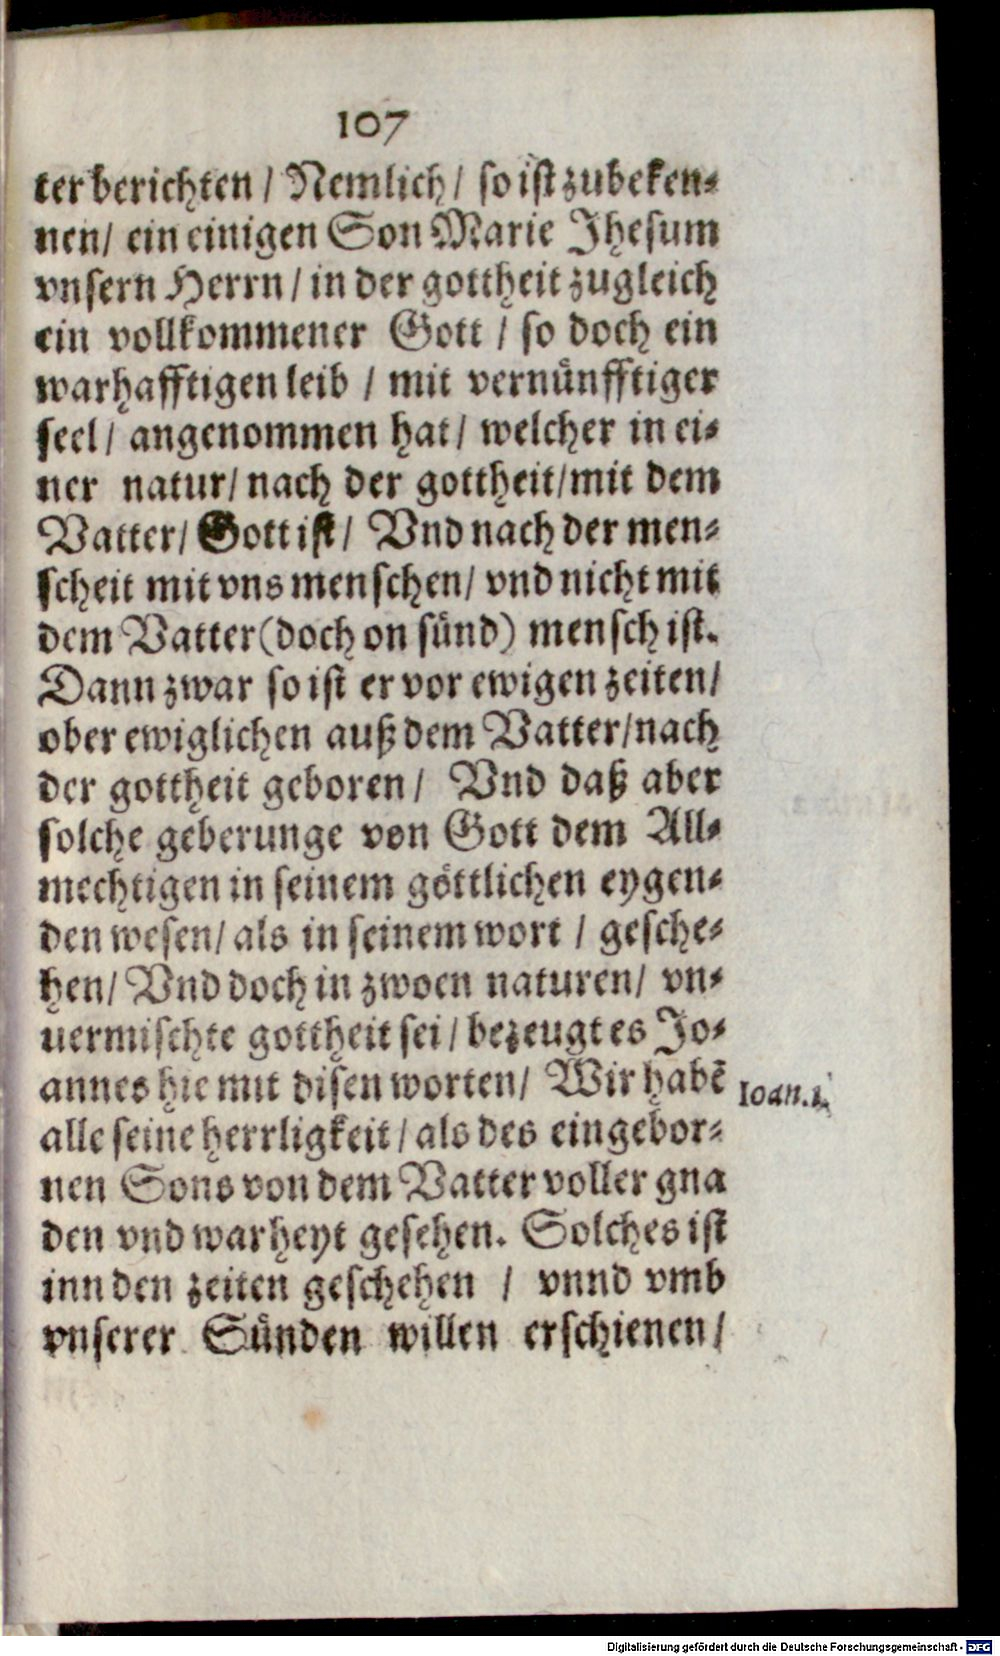 107
ter berichten / Nemlich / so ist zubeken⸗
nen / ein einigen Son Marie Jhesum
vnsern Herrn / in der gottheit zugleich
ein vollkommener Gott / so doch ein
warhafftigen leib / mit vernünfftiger
seel / angenommen hat / welcher in ei⸗
ner natur / nach der gottheit / mit dem
Vatter / Gott ist / Vnd nach der men⸗
scheit mit vns menschen / vnd nicht mit
dem Vatter (doch on sünd) mensch ist.
Dann zwar so ist er vor ewigen zeiten /
ober ewiglichen auß dem Vatter / nach
der gottheit geboren / Vnd daß aber
solche geberunge von Gott dem All⸗
mechtigen in seinem göttlichen eygen⸗
den wesen / als in seinem wort / gesche⸗
hen / Vnd doch in zwoen naturen / vn⸗
uermischte gottheit sei / bezeugt es Jo⸗
annes hie mit disen worten / Wir habẽ
Ioan.1.
alle seine herrligkeit / als des eingebor⸗
nen Sons von dem Vatter voller gna
den vnd warheyt gesehen. Solches ist
inn den zeiten geschehen / vnnd vmb
vnserer Sünden willen erschienen /
Digitalisierung gefördert durch die Deutsche Forschungsgemeinschaft - DFG